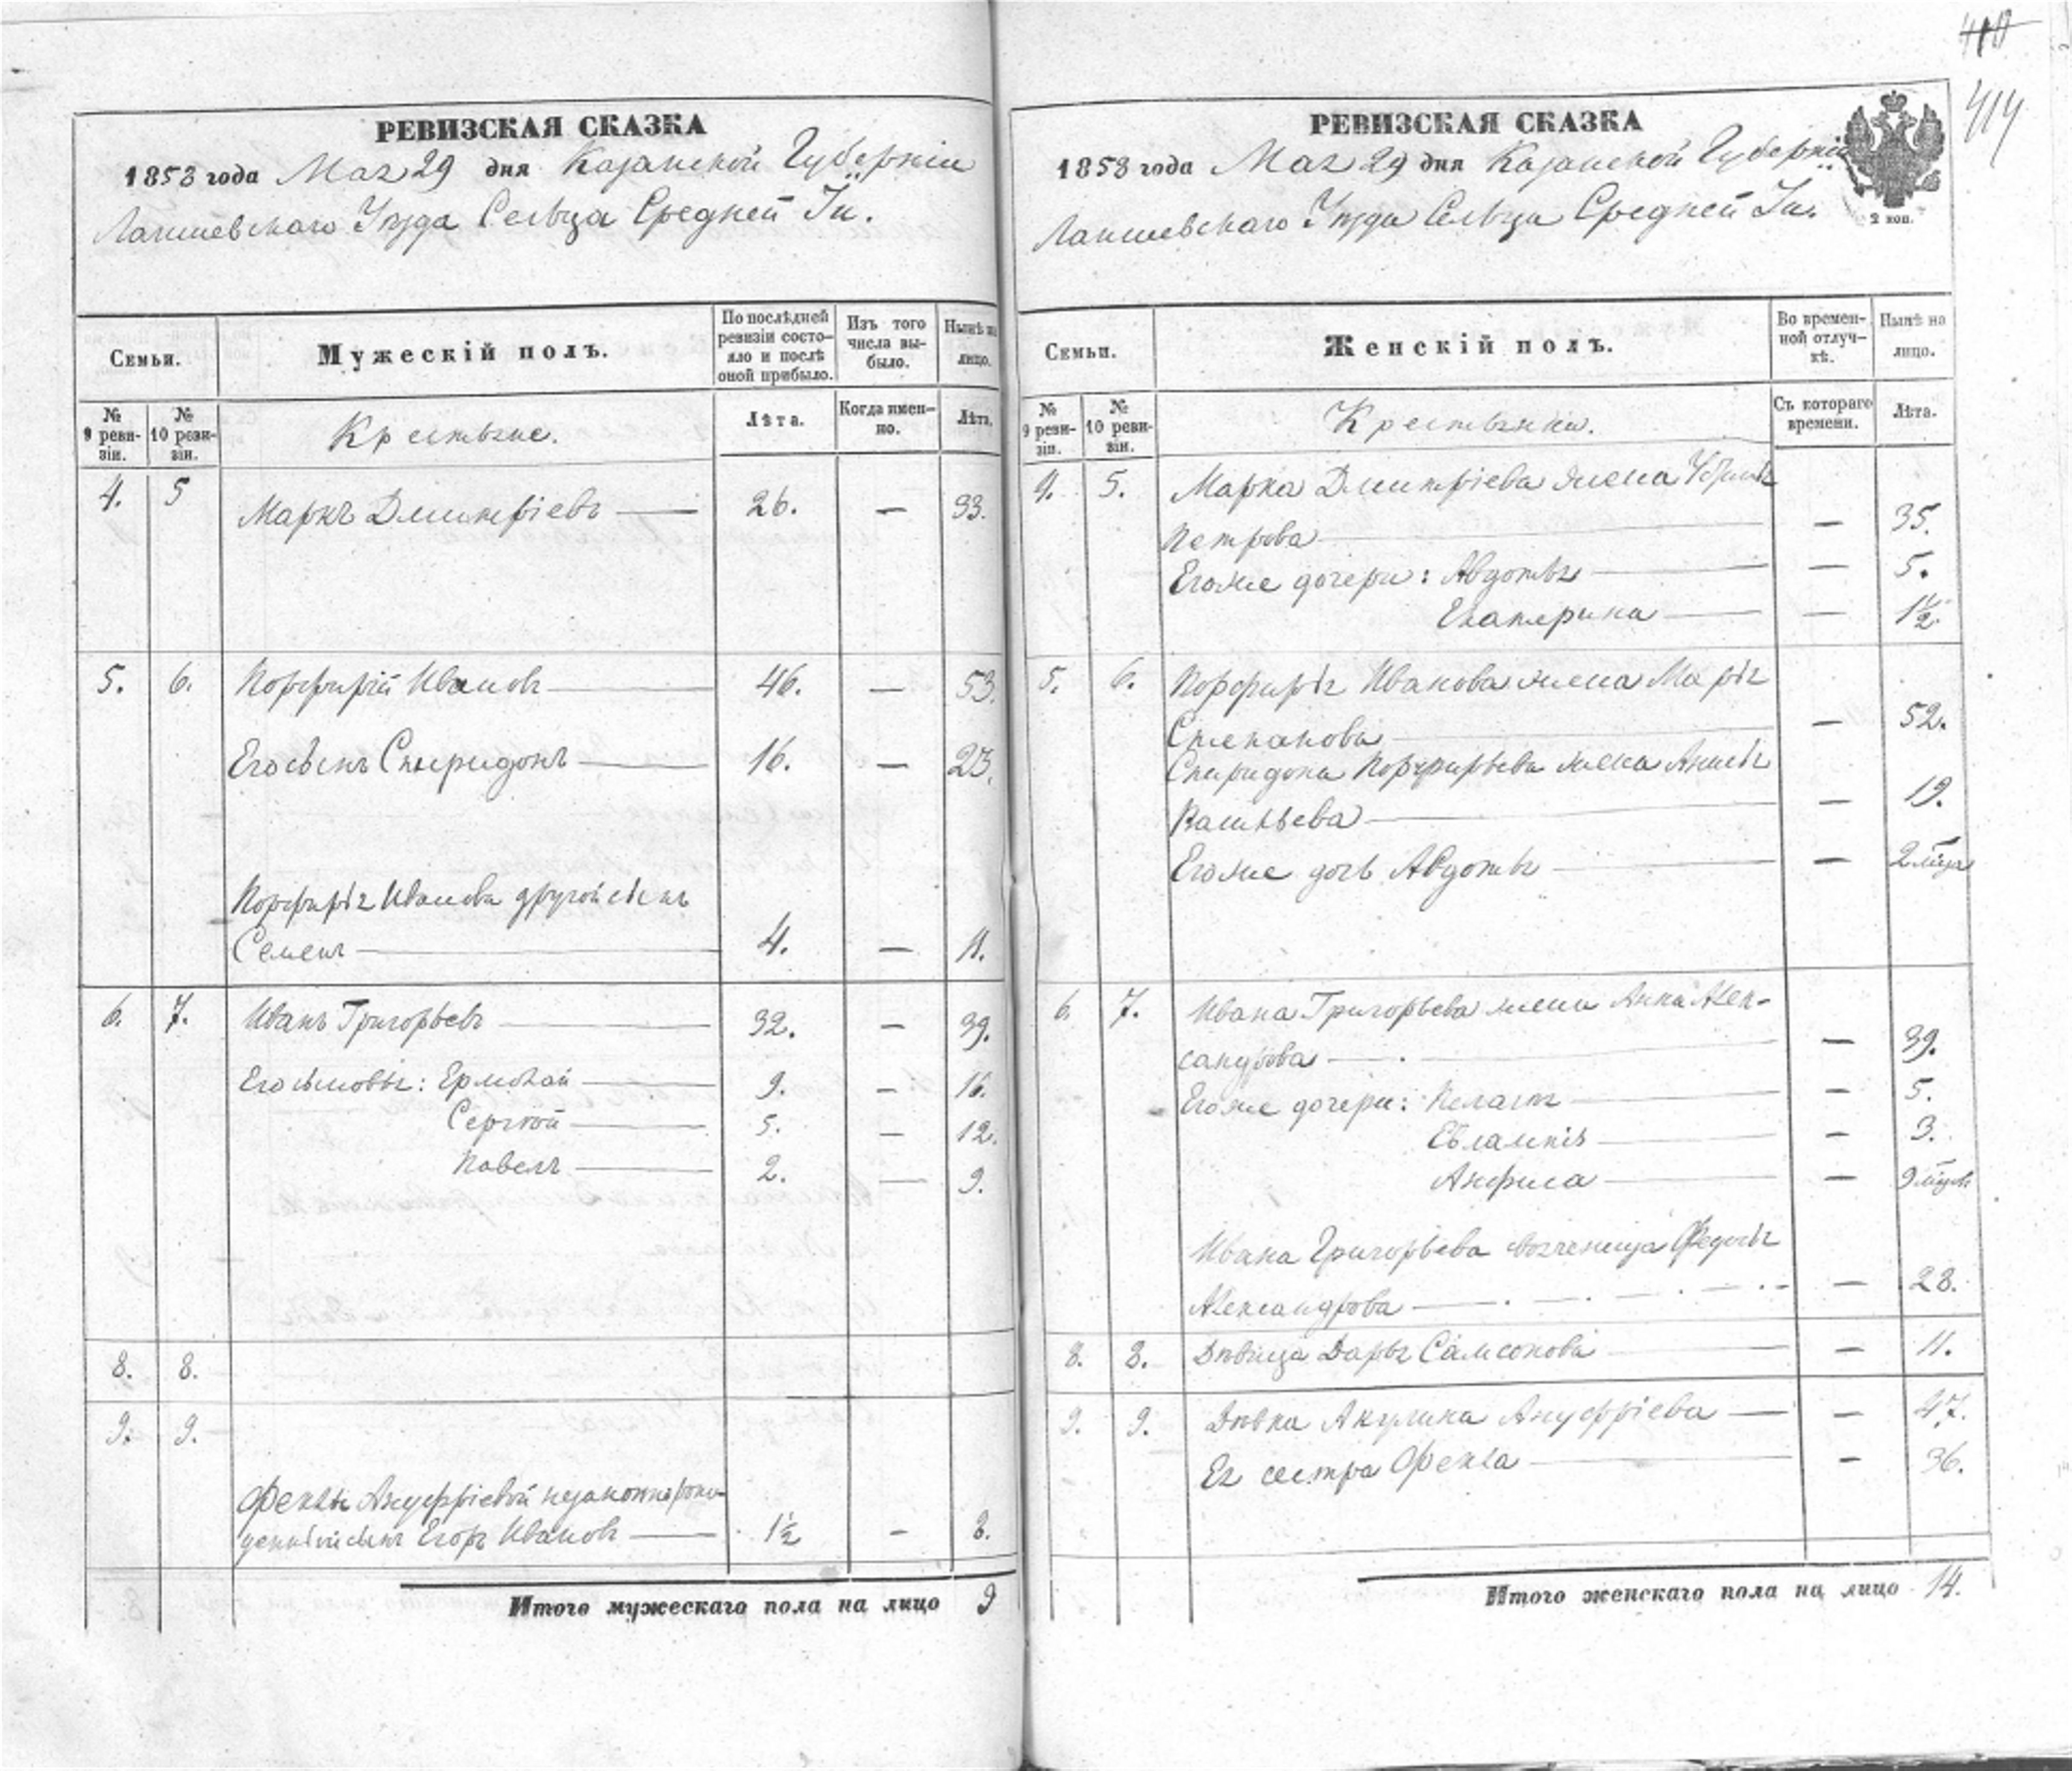 410
414
РЕВИЗСКАЯ СКАЗКА
1858 года Мая 29 дня Казанской Губерніи
Лаишевскаго Уѣзда Сельца Средней Ін.
Семьи.
Мужескій полъ.
По послѣдней ревизіи состояло и послѣ оной прибыло.
Изъ того числа выбыло.
Нынѣ на лицо.
№ 9 ревизіи.
№ 10 ревизіи.
Крестьяне.
Лѣта.
Когда именно.
Лѣта.
4. 5 Маркъ Дмитріевъ — 26. — 33.
5. 6. Порфирій Ивановъ — 46. — 53.
Его сынъ Спиридонъ — 16. — 23.
Порфирія Иванова другой сынъ
Семенъ — 4. — 11.
6. 7. Иванъ Григорьевъ — 32. — 39.
Его сыновья: Ермолай — 9. — 16.
Сергѣй — 5. — 12.
Павелъ — 2. — 9.
8. 8.
9. 9.
Феклы Ануфріевой незаконнорож-
денный сынъ Егоръ Ивановъ — 1½ — 8.
Итого мужескаго пола на лицо 9
РЕВИЗСКАЯ СКАЗКА
1858 года Мая 29 дня Казанской Губерніи
Лаишевскаго Уѣзда Сельца Средней Ін.
2 коп.
Семьи.
Женскій полъ.
Во временной отлучкѣ.
Нынѣ на лицо.
№ 9 ревизіи.
№ 10 ревизіи.
Крестьянки.
Съ котораго времени.
Лѣта.
4. 5. Марка Дмитріева жена
Петрова — — 35.
Его же дочери: Авдотья — — 5.
Екатерина — — 1½.
5. 6. Порфирія Иванова жена Марія
Степанова — — 52.
Спиридона Порфирьева жена Анисья
Васильева — — 19.
Его же дочь Авдотья — — 2 мѣсяца
6. 7. Ивана Григорьева жена Анна Алек-
сандрова — — 39.
Его же дочери: Пелагея — — 5.
Евлампія — — 3.
Анфиса — — 9 мѣсяц.
Ивана Григорьева своячница Федосья
Александрова — — 28.
8. 8. Дѣвица Дарья Самсонова — — 11.
9. 9. Дѣвка Акулина Ануфріева — — 47.
Ея сестра Фекла — — 36.
Итого женскаго пола на лицо 14.